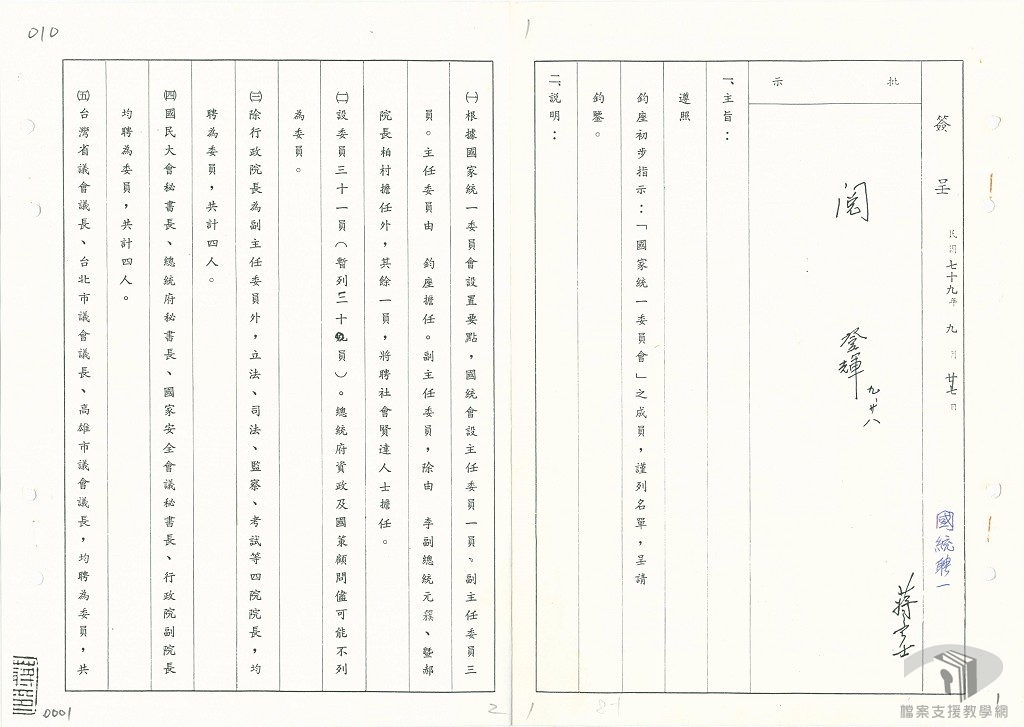 簽呈
民國七十九年九月廿七日
國統聘一
批示
閱
登輝
九、廿八
一、主旨：
遵照
鈞座初步指示：「國家統一委員會」之成員，謹列名單，呈請
鈞鑒。
二、說明：
1
1
8-1
㈠根據國家統一委員會設置要點，國統會設主任委員一員。副主任委員三
員。主任委員由　鈞座擔任。副主任委員，除由　李副總統元簇、暨郝
院長柏村擔任外，其餘一員，將聘社會賢達人士擔任。
㈡設委員三十一員（暫列二十員）。總統府資政及國策顧問儘可能不列
為委員。
㈢除行政院長為副主任委員外，立法、司法、監察、考試等四院院長，均
聘為委員，共計四人。
㈣國民大會秘書長、總統府秘書長、國家安全會議秘書長、行政院副院長
均聘為委員，共計四人。
㈤台灣省議會議長、台北市議會議長、高雄市議會議長，均聘為委員，共
010
0001
2
檔案支援教學網